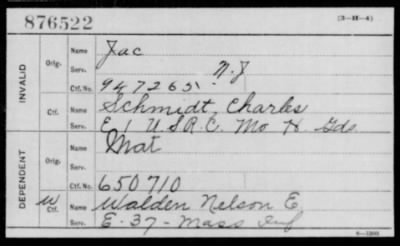 876522 (3-H-4)
INVALID
Orig.
Name Jac
Serv. N.J
Ctf. No. 947265
Ctf.
Name Schmidt, Charles
Serv. E 1 U.S.R.C. Mo H. Gds.
DEPENDENT
Orig.
Name Mat
Serv.
Ctf. No. 650710
W Ctf.
Name Walden Nelson E
Serv. E-37-Mass Inf